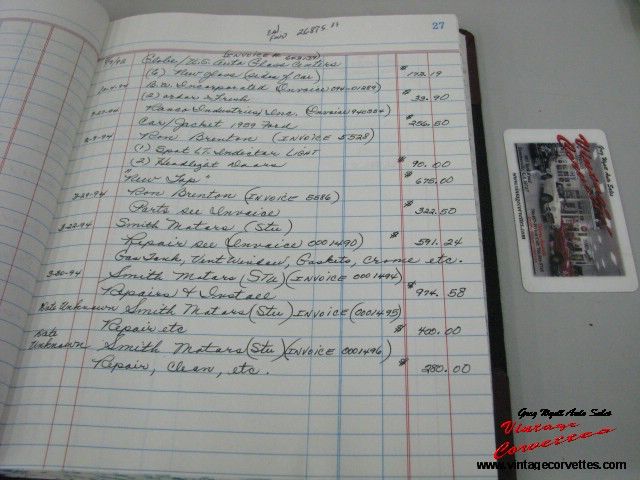 26875
27
Globe/U.S. Auto Glass Centers
(6) New glass (sides of car)
$ 172.19
B.B. Incorporated (Invoice 094-01289)
(2)
$ 39.90
Industries, Inc. (Invoice
Car/Jacket 1959 Ford
$ 256.50
Ron Brenton (INVOICE 5528)
(1) Spot Lt. LIGHT
(2) Headlight Doors
$ 90.00
"New Top"
$ 675.00
Ron Brenton (INVOICE 5586)
Parts see Invoice
$ 322.50
3-22-94 Smith Motors (Stu)
Repair see (Invoice 0001490)
$ 591.24
Gas Tank, Vent Window, Gaskets, Crome etc.
3-30-94 Smith Motors (Stu) (INVOICE 0001494)
Repairs & Install
$ 974.58
Date Unknown Smith Motors (Stu) INVOICE (0001495)
Repair etc
$ 400.00
Date
Unknown Smith Motors (Stu) (INVOICE 0001496)
Repair, Clean, etc.
$ 280.00
Greg Wyatt Auto Sales
Vintage
Corvettes
www.vintagecorvettes.com
Greg Wyatt Auto Sales
Vintage
Corvettes
www.vintagecorvettes.com